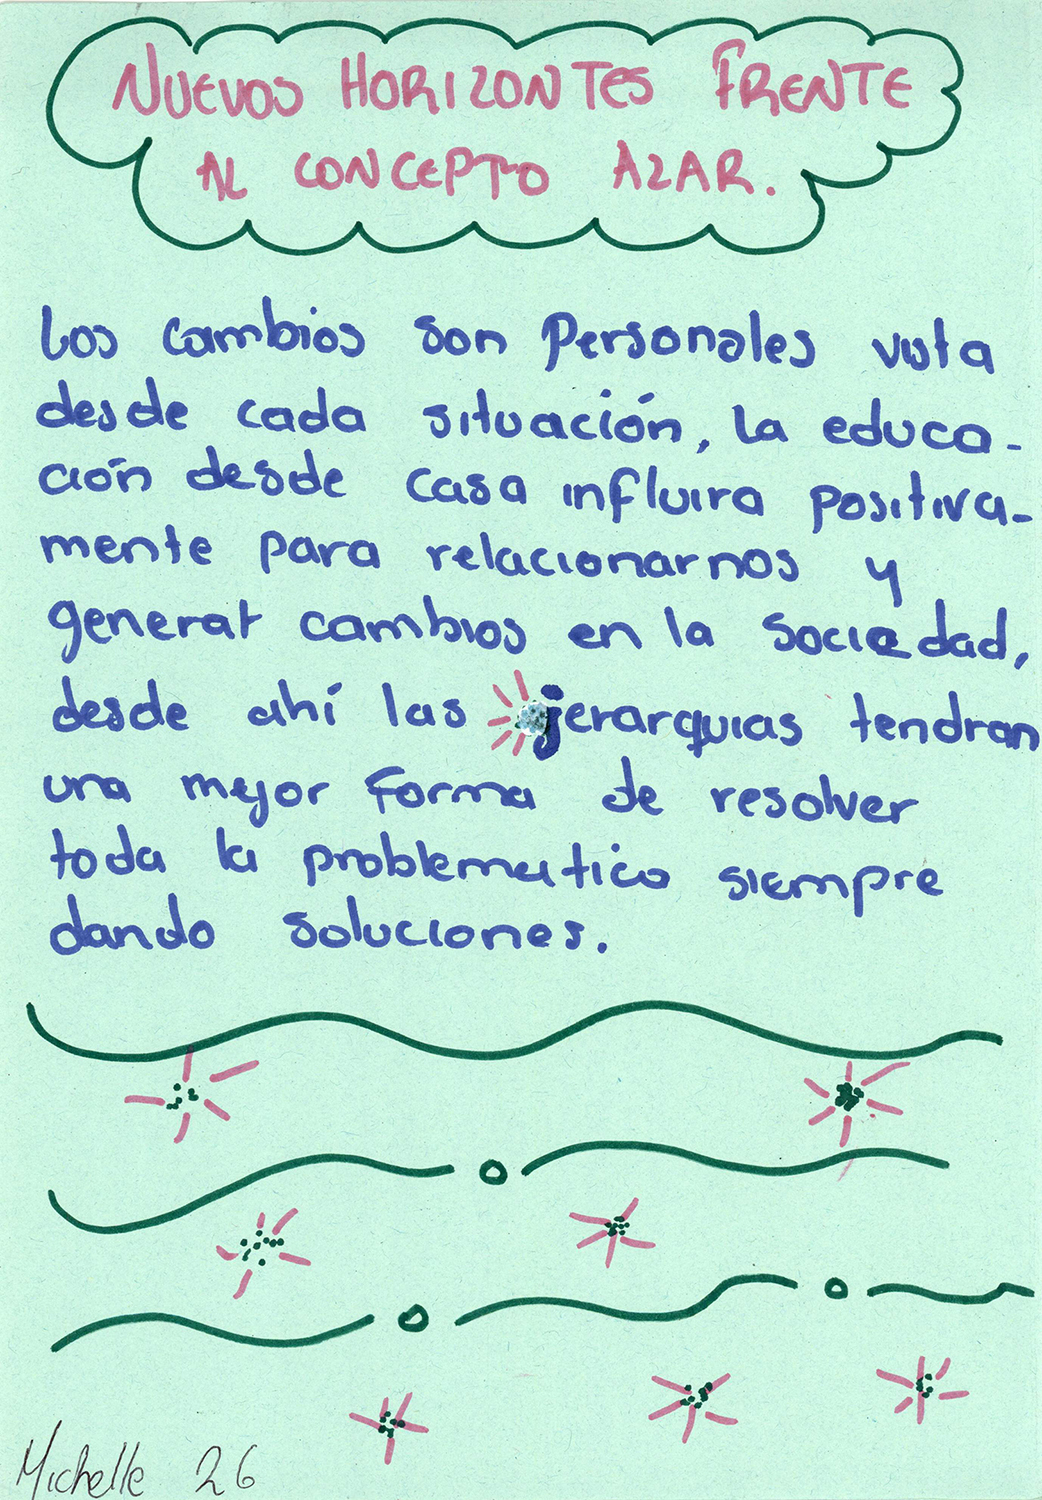 NUEVOS HORIZONTES FRENTE
AL CONCEPTO AZAR.
Los cambios son Personales vista
desde cada situación, la educa-
ción desde casa influira positiva-
mente para relacionarnos y
generar cambios en la sociedad,
desde ahí las jerarquias tendran
una mejor forma de resolver
toda la problematica siempre
dando soluciones.
Michelle 26